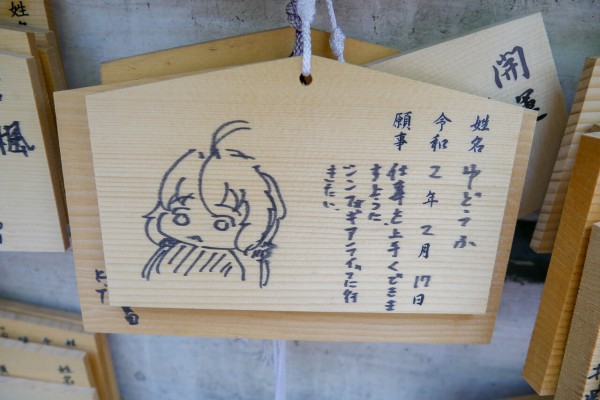 姓名 ゆどうふ
令和 2年 2月 17日
願事
仕事を上手くできま
すように
シンフォギアライブに行
きたい
開運
楓
姓名